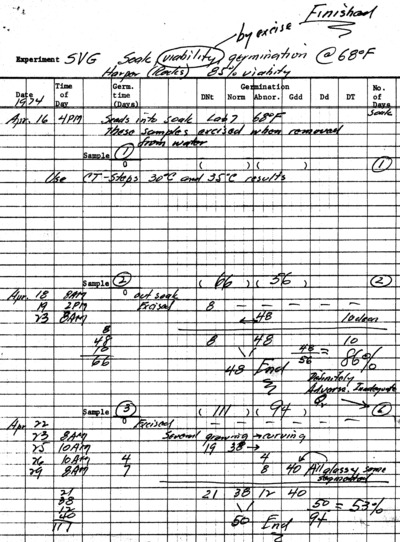 Finished
by excise
Experiment SVG Soak (viability) germination @ 68°F
Harper (Rocks) 85% viability
Time Germ. Germination No.
Date of time of
1974 Day (Days) DNt Norm Abnor. Gdd Dd DT Days
Soak
Apr. 16 4PM Seeds into soak Lab 7 68°F
These samples excised when removed
from water
Sample 1 ( ) ( ) 1
0
Use CT-Steps 30°C and 35°C results
Sample 2 (66) (56) 2
Apr. 18 8AM 0 out soak
19 2PM Excised 8 - - - - -
23 8AM 48 10 clean
8
48 8 48 10
10
66
48 End 48/56 = 86%
Definitely
Adverse. Inadequate
O₂
Sample 3 (111) (94) 6
Apr 22 0 Excised - - - - -
23 8AM Several growing → curving
25 10AM 19 38 →
26 10AM 4 4
29 8AM 7 8 40 All glassy, some
21 21 38 12 40
38
12
40
111
50 End 50/94 = 53%